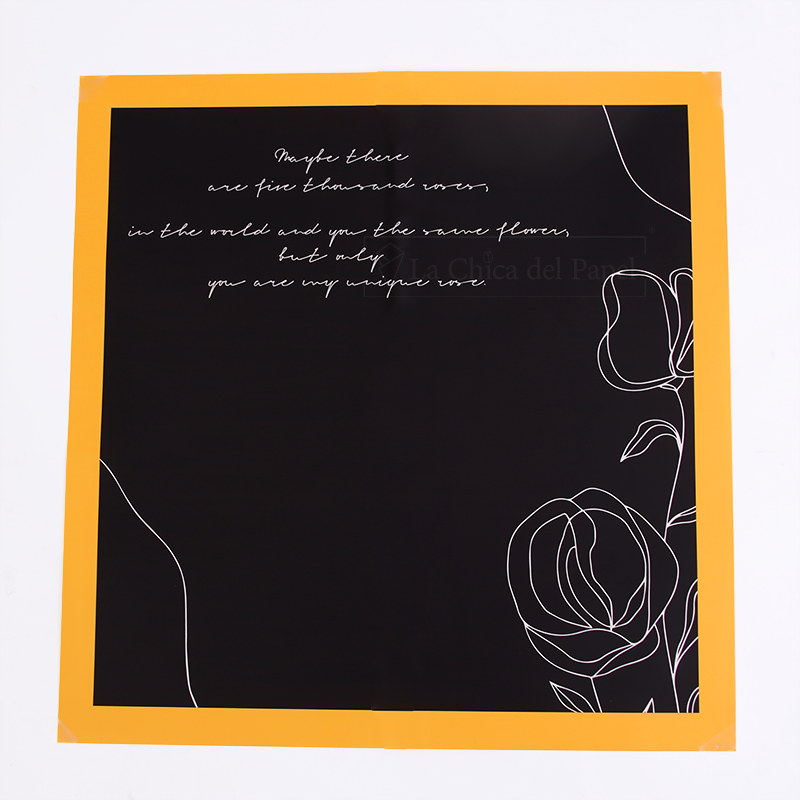 Maybe there
are five thousand roses,
in the world and you the same flower,
but only
La Chica del Panel
you are my unique rose.